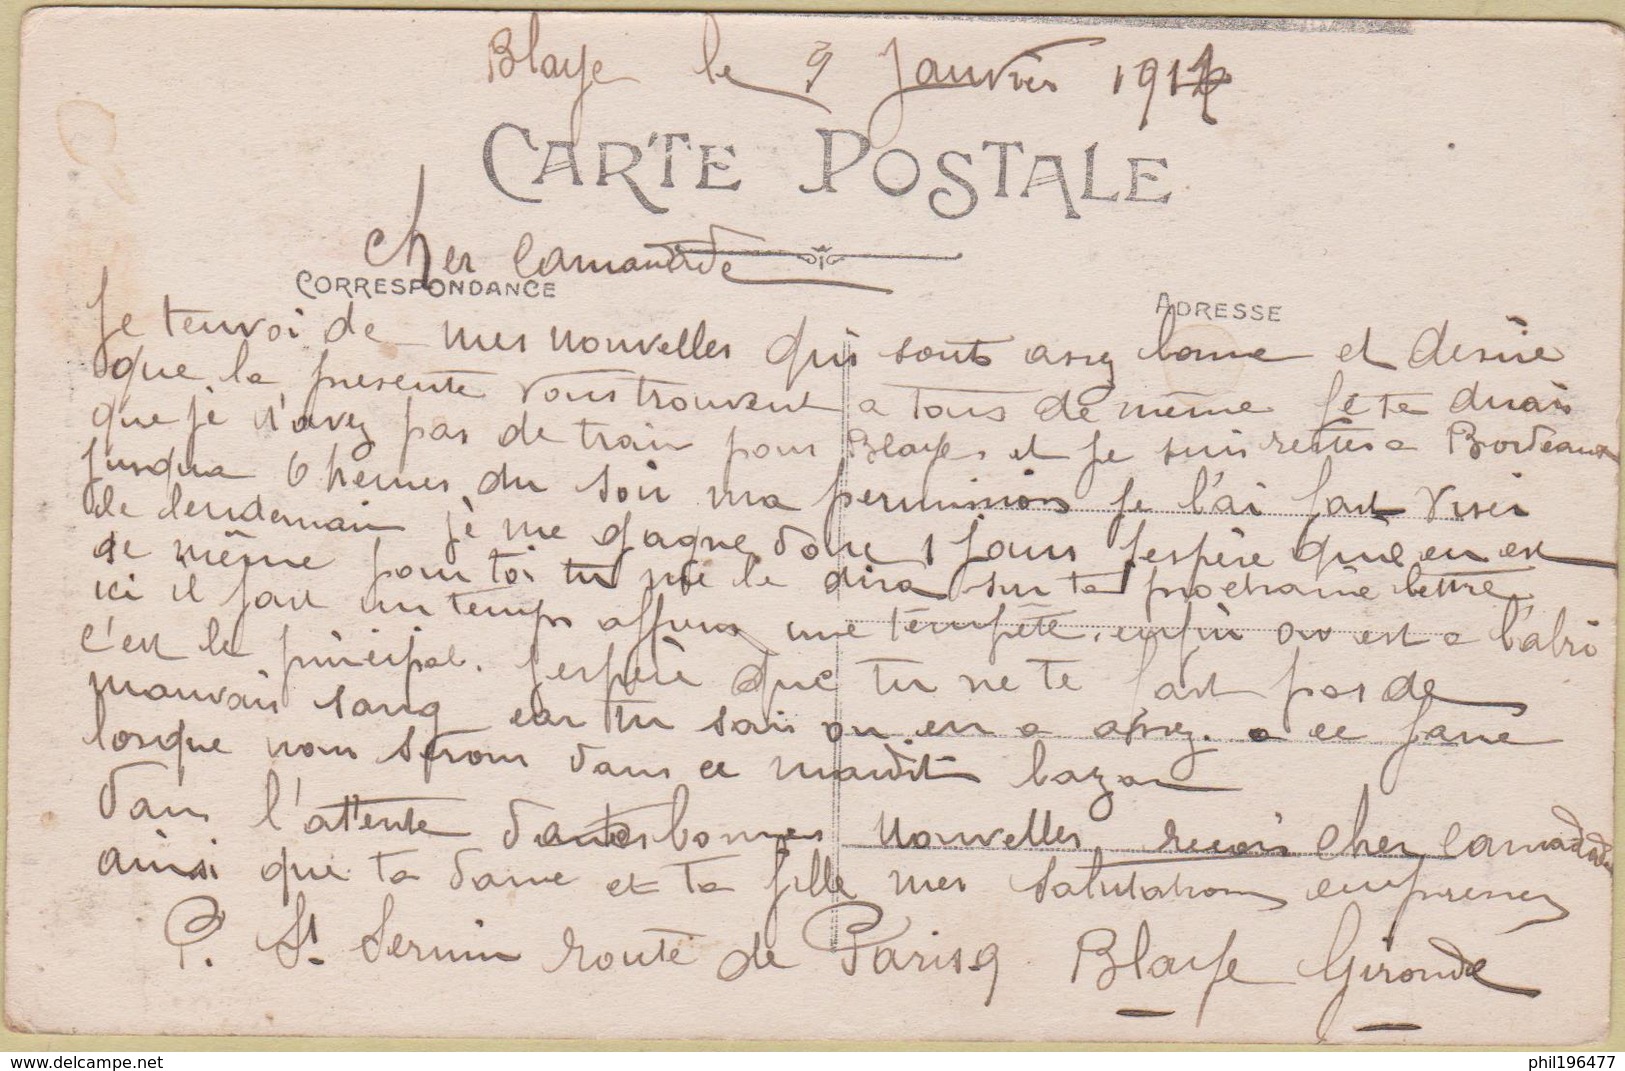 Blaye le 9 Janvier 191
CARTE POSTALE
Cher Camarade
CORRESPONDANCE
ADRESSE
Je tenvoi de mes nouvelles qui sonts assez bonne et desire
que la presente vous trouvent a tous de même Je te dirais
que je n'avez pas de train pour Blaye, et je suis restter a Bordeaux
jusqua 6 heures du soir ma permission je l'ai fait viser
le lendemain je me gagne donc 1 jours J'espère que en est
de même pour toi tu me le dira sur ta prochaine lettre
ici il fait un temps affreux une tempête. enfin on est a l'abri
c'est le principal. J'espère que tu ne te fait pas de
mauvais sang car tu sais on en a assez. a ce faire
lorsque nous serons dans ce maudit bazar
dans l'attente bonnes nouvelles recois cher camarade
ainsi que ta dame et ta fille mes salutations empresses
P. St Sernin route de Paris 9 Blaye Gironde
phil196477